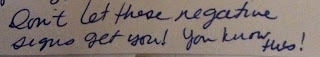 Don't let these negative
signs get you! You know
this!